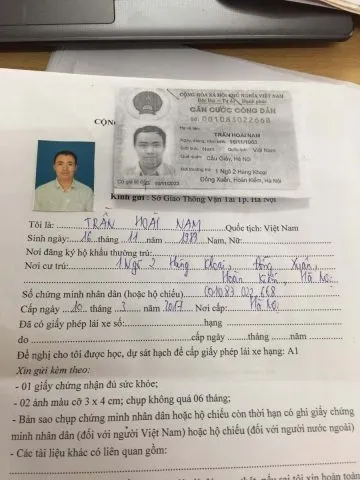 CỘNG HÒA XÃ HỘI CHỦ NGHĨA VIỆT NAM
Độc lập - Tự do - Hạnh phúc
CĂN CƯỚC CÔNG DÂN
Số: 001083022668
Họ và tên:
TRẦN HOÀI NAM
Ngày, tháng, năm sinh: 16/11/1983
Giới tính: Nam Quốc tịch: Việt Nam
Quê quán: Cầu Giấy, Hà Nội
Nơi thường trú: 1 Ngõ 2 Hàng Khoai
Đồng Xuân, Hoàn Kiếm, Hà Nội
Có giá trị đến: 16/11/2023
CỘN
Kính gửi : Sở Giao Thông Vận Tải Tp. Hà Nội
Tôi là: TRẦN HOÀI NAM Quốc tịch: Việt Nam
Sinh ngày: 16 tháng 11 năm Nam, Nữ:
Nơi đăng ký hộ khẩu thường trú:
Nơi cư trú: 1 Ngõ 2 Hàng Khoai, Đồng Xuân,
Hoàn Kiếm, Hà Nội
Số chứng minh nhân dân (hoặc hộ chiếu) 001083 022 668
Cấp ngày 10 tháng 3 năm 2017 Nơi cấp: Hà Nội
Đã có giấy phép lái xe số: hạng
do cấp ngày tháng năm
Đề nghị cho tôi được học, dự sát hạch để cấp giấy phép lái xe hạng: A1
Xin gửi kèm theo:
- 01 giấy chứng nhận đủ sức khỏe;
- 02 ảnh màu cỡ 3 x 4 cm; chụp không quá 06 tháng;
- Bản sao chụp chứng minh nhân dân hoặc hộ chiếu còn thời hạn có ghi giấy chứng
minh nhân dân (đối với người Việt Nam) hoặc hộ chiếu (đối với người nước ngoài)
- Các tài liệu khác có liên quan gồm:
nếu sai tôi xin hoàn toàn